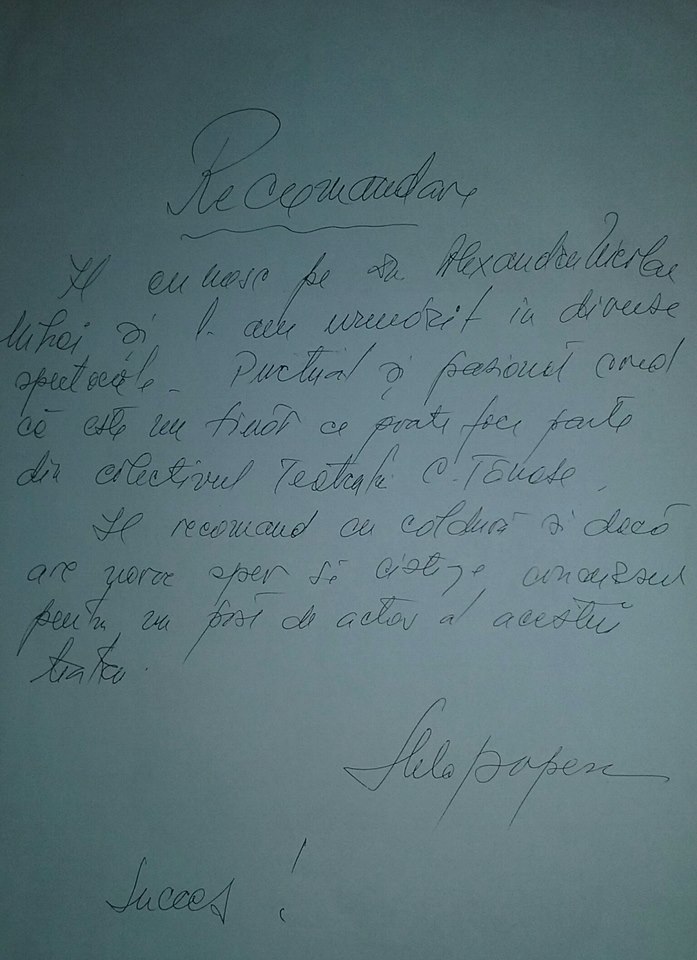 Recomandare
Îl cunosc pe dl Alexandru Nicolae
Mihai și l-am urmărit in diverse
spectacole. Punctual și pasionat cred
că este un tînăr ce poate face parte
din colectivul Teatrului C. Tănase.
Îl recomand cu căldură și dacă
are noroc sper să cîștige concursul
pentru un post de actor al acestui
teatru.
Stela Popescu
Succes!